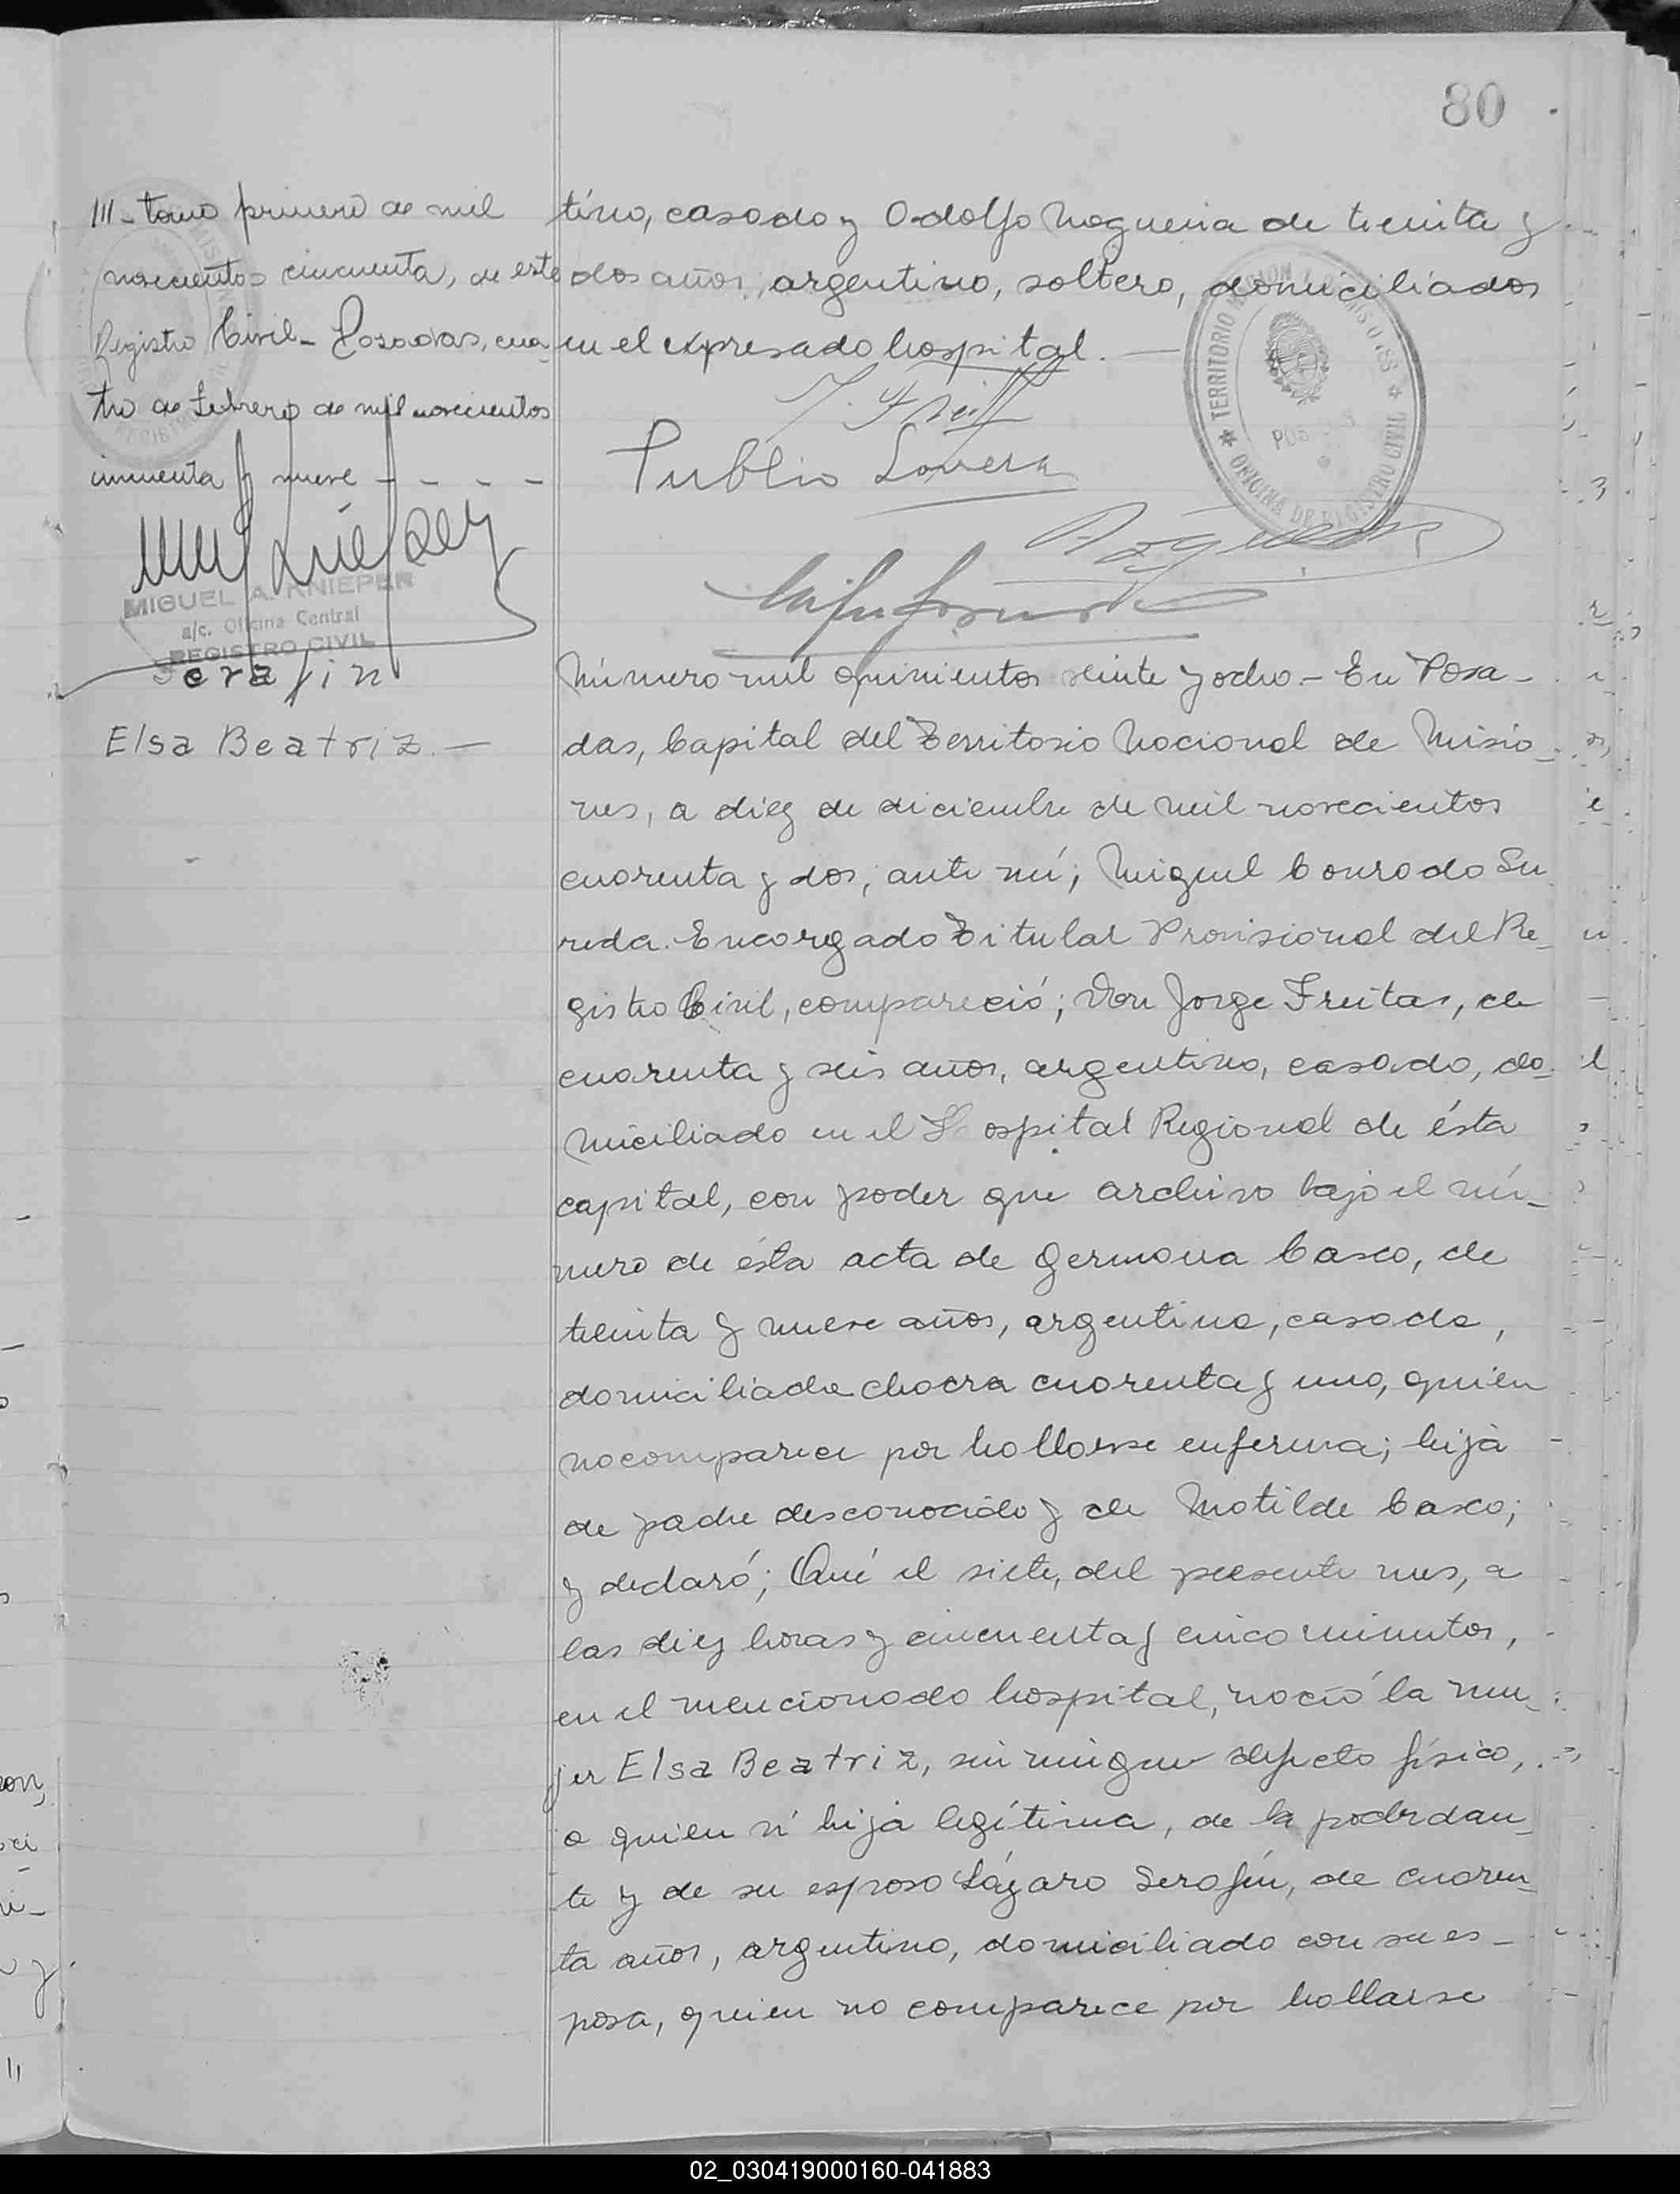 80
III - tomo primero de mil
novecientos cincuenta, de este
Registro Civil - Posadas, cua-
tro de Febrero de mil novecientos
cincuenta y nueve - - - -
MIGUEL A. KNIEPER
a/c. Oficina Central
REGISTRO CIVIL
tino, casado y Adolfo Nogueira de treinta y
dos años, argentino, soltero, domiciliados
en el expresado hospital. —
TERRITORIO MISIONES
POSADAS
OFICINA DE REGISTRO CIVIL
Publio Lovera
Serafin
Elsa Beatriz. —
Número mil quinientos veinte y ocho. - En Posa-
das, Capital del Territorio Nacional de Misio-
nes, a diez de diciembre de mil novecientos
cuarenta y dos; ante mí; Miguel Conrado Su
reda. Encargado Titular Provisional del Re-
gistro Civil, compareció; Don Jorge Freitas, de
cuarenta y seis años, argentino, casado, do-
miciliado en el Hospital Regional de ésta
capital, con poder que archivo bajo el nú-
mero de ésta acta de Germana Casco, de
treinta y nueve años, argentina, casada,
domiciliada chacra cuarenta y uno, quien
no comparece por hallarse enferma; hija
de padre desconocido y de Matilde Casco;
y declaró; Qué el siete, del presente mes, a
las diez horas y cincuenta y cinco minutos,
en el mencionado hospital, nació la mu-
jer Elsa Beatriz, sin ningun defecto físico,
a quien vi hija legítima, de la poderdan-
te y de su esposo Lázaro Serafín, de cuaren-
ta años, argentino, domiciliado con su es-
posa, quien no comparece por hallarse
02_030419000160-041883